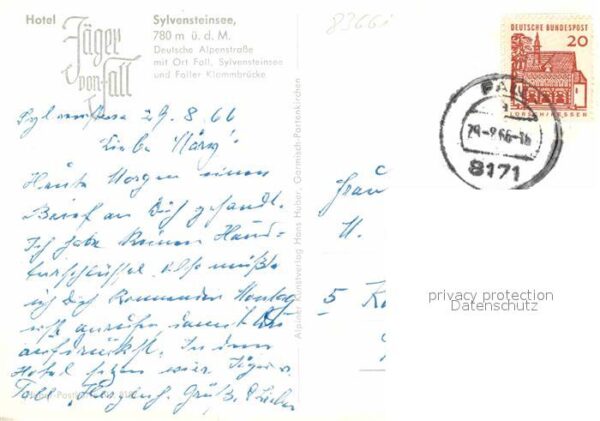 Hotel
Jäger
von Fall
Sylvensteinsee,
780 m ü. d. M.
Deutsche Alpenstraße
mit Ort Fall, Sylvensteinsee
und Faller Klammbrücke
8366
DEUTSCHE BUNDESPOST
20
LORSCH/HESSEN
FALL
8171
29.8.66
Liebe
Heute Morgen einen
Brief an Dich gesandt.
Ich habe keinen Haus-
turschlüssel. Also müßte
ich Dich kommenden Montag
anrufen damit
In dem
Hotel sitzen wir Jäger v.
Fall. Herzlich. Grüße &
Alpiner Kunstverlag Hans Huber, Garmisch-Partenkirchen
Frau
5
privacy protection
Datenschutz